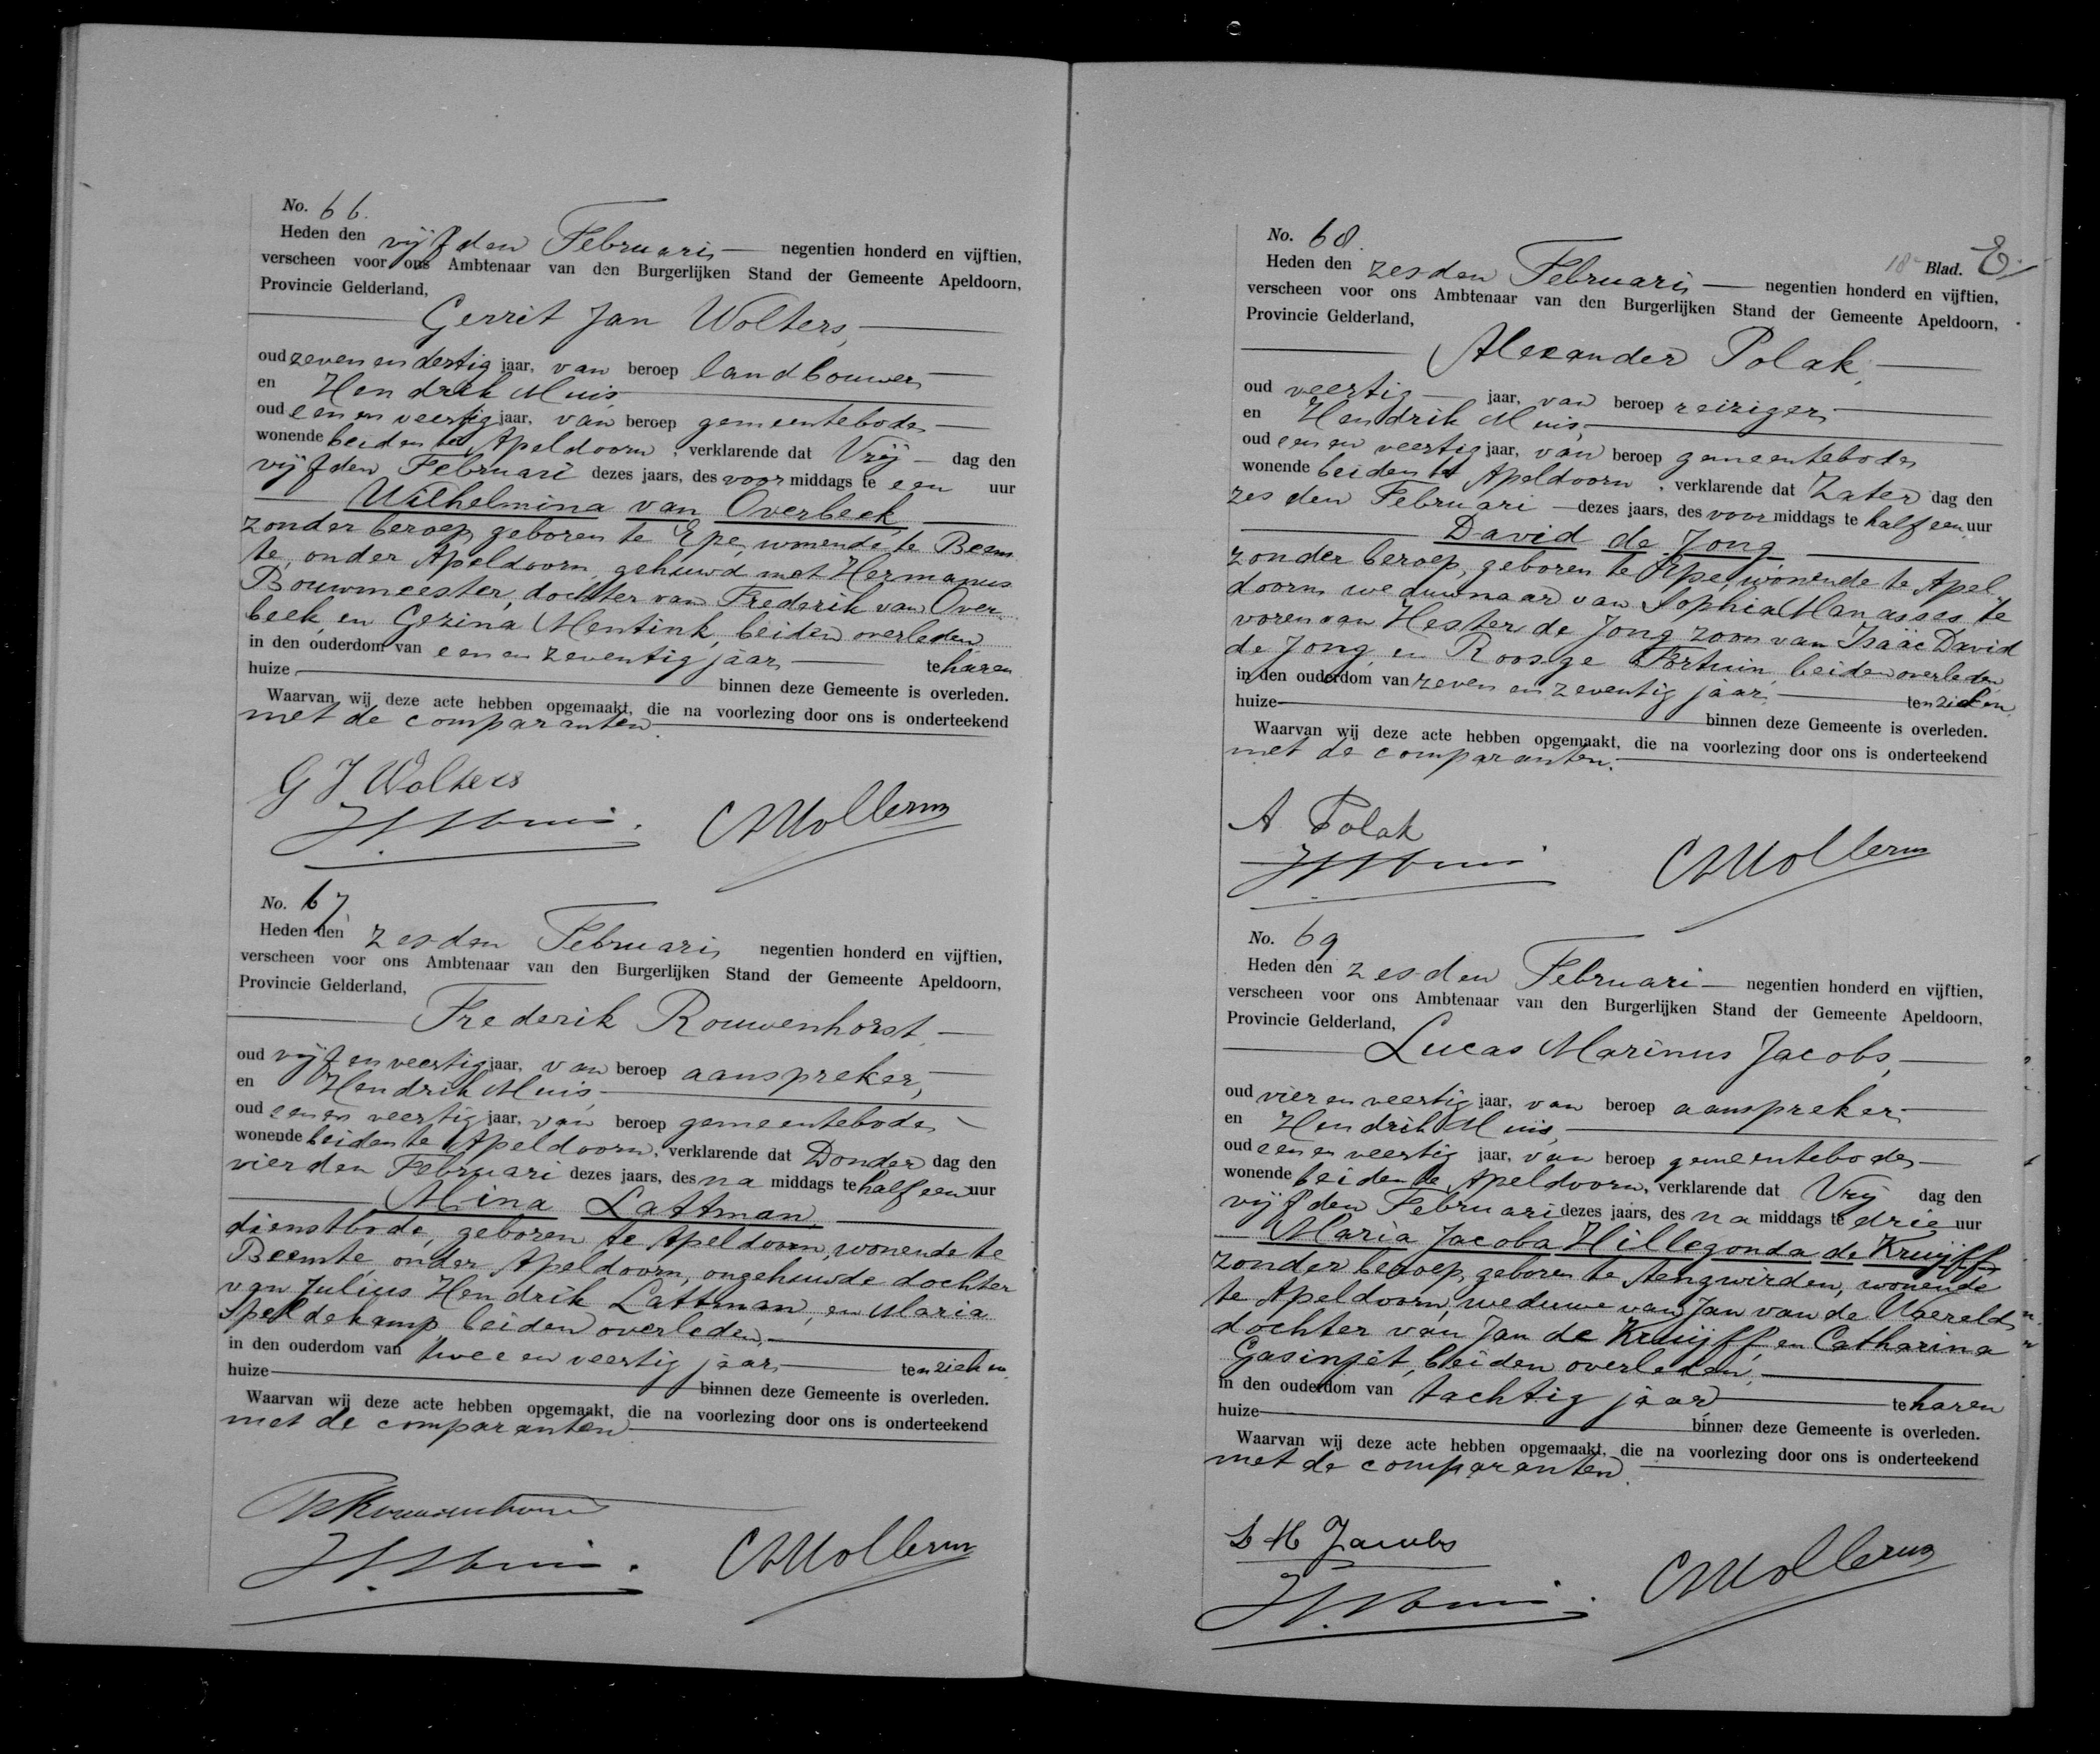 No. 66.
Heden den vijfden Februari negentien honderd en vijftien,
verscheen voor ons Ambtenaar van den Burgerlijken Stand der Gemeente Apeldoorn,
Provincie Gelderland,
Gerrit Jan Wolters,
oud zeven en dertig jaar, van beroep landbouwer
en Hendrik Muis
oud een en veertig jaar, van beroep gemeentebode
wonende beiden te Apeldoorn, verklarende dat Vrij dag den
vijfden Februari dezes jaars, des voor middags te een uur
Wilhelmina van Overbeek
zonder beroep, geboren te Epe, wonende te Beem
te, onder Apeldoorn, gehuwd met Hermanus
Bouwmeester, dochter van Frederik van Over
beek en Gezina Mentink, beiden overleden
in den ouderdom van een en zeventig jaar te haren
huize binnen deze Gemeente is overleden.
Waarvan wij deze acte hebben opgemaakt, die na voorlezing door ons is onderteekend
met de comparanten.
G J Wolters
H Muis.
No. 67
Heden den zesden Februari negentien honderd en vijftien,
verscheen voor ons Ambtenaar van den Burgerlijken Stand der Gemeente Apeldoorn,
Provincie Gelderland,
Frederik Rouwenhorst
oud vijf en veertig jaar, van beroep aanspreker,
en Hendrik Muis
oud een en veertig jaar, van beroep gemeentebode
wonende beiden te Apeldoorn, verklarende dat Donder dag den
vierden Februari dezes jaars, des na middags te half een uur
Mina Lattman
dienstbode, geboren te Apeldoorn, wonende te
Beemte onder Apeldoorn, ongehuwde dochter
van Julius Hendrik Lattman, en Maria
Speldekamp, beiden overleden,
in den ouderdom van twee en veertig jaar ten zieken
huize binnen deze Gemeente is overleden.
Waarvan wij deze acte hebben opgemaakt, die na voorlezing door ons is onderteekend
met de comparanten
H Muis.
No. 68.
18 Blad.
Heden den zesden Februari negentien honderd en vijftien,
verscheen voor ons Ambtenaar van den Burgerlijken Stand der Gemeente Apeldoorn,
Provincie Gelderland,
Alexander Polak,
oud veertig jaar, van beroep reiziger
en Hendrik Muis,
oud een en veertig jaar, van beroep gemeentebode
wonende beiden te Apeldoorn, verklarende dat Zater dag den
zesden Februari dezes jaars, des voor middags te half een uur
David de Jong,
zonder beroep, geboren te Epe, wonende te Apel
doorn weduwnaar van Sophia Manasses te
voren van Hester de Jong zoon van Isaäc David
de Jong en Roosge Fortuin, beiden overleden
in den ouderdom van zeven en zeventig jaar, ten zieken
huize binnen deze Gemeente is overleden.
Waarvan wij deze acte hebben opgemaakt, die na voorlezing door ons is onderteekend
met de comparanten.
A Polak
H Muis
No. 69
Heden den zesden Februari negentien honderd en vijftien,
verscheen voor ons Ambtenaar van den Burgerlijken Stand der Gemeente Apeldoorn,
Provincie Gelderland,
Lucas Marinus Jacobs,
oud vier en veertig jaar, van beroep aanspreker
en Hendrik Muis,
oud een en veertig jaar, van beroep gemeentebode
wonende beiden te Apeldoorn, verklarende dat Vrij dag den
vijfden Februari dezes jaars, des na middags te drie uur
Maria Jacoba Hillegonda de Kruijff
zonder beroep, geboren te Aengwirden, wonende
te Apeldoorn, weduwe van Jan van de Waereld,
dochter van Jan de Kruijff, en Catharina
Gasinjet, beiden overleden,
in den ouderdom van tachtig jaar te haren
huize binnen deze Gemeente is overleden.
Waarvan wij deze acte hebben opgemaakt, die na voorlezing door ons is onderteekend
met de comparanten.
L M Jacobs
H Muis.